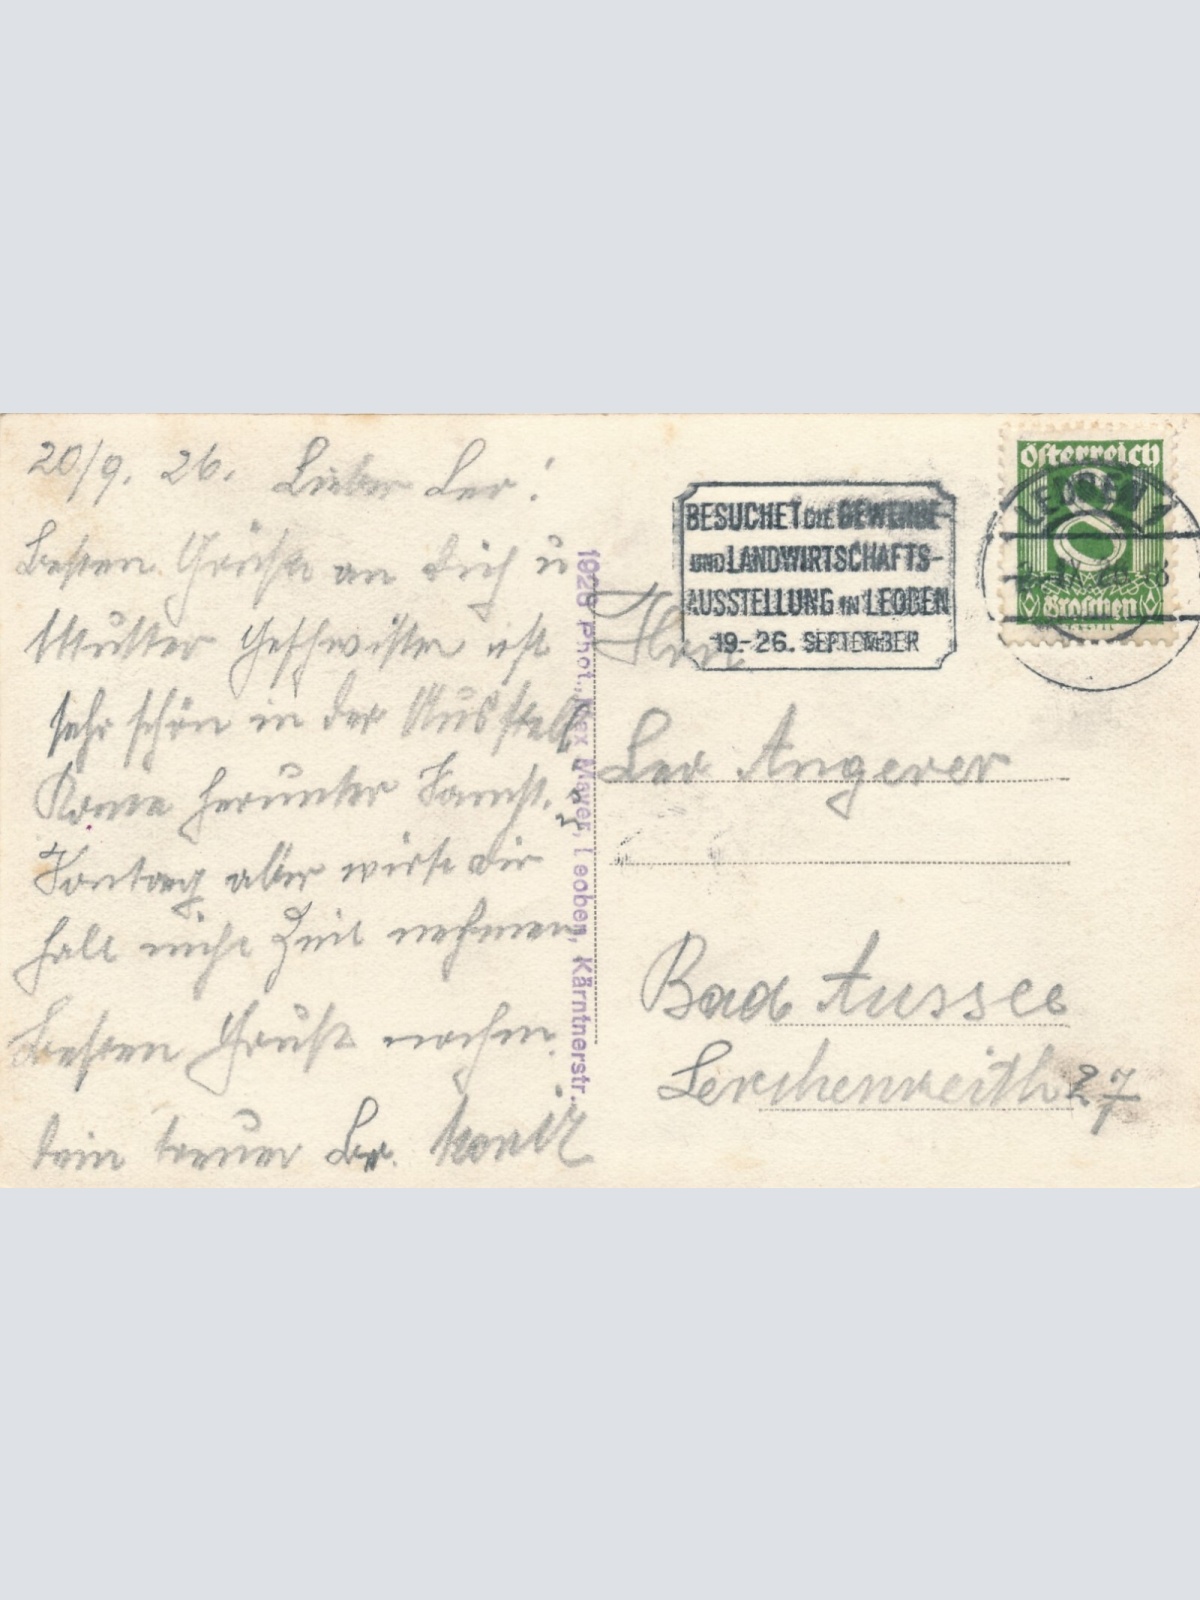 20/9. 26. Lieber Leo!
Besten Grüße an Dich u
Mutter Geschwister ist
sehr schön in der Ausstell
Kome herunter Samst. u
Sontag aber wirst dir
halt nicht Zeit nehmen
Besten Gruß nochm.
dein treuer Br. Moritz
1926 Phot. Max Mayer, Leoben, Kärntnerstr.
BESUCHET DIE GEWERBE-
UND LANDWIRTSCHAFTS-
AUSSTELLUNG IN LEOBEN
19-26. SEPTEMBER
Österreich
8
Groschen
LEOBEN 1
Herrn
Leo Angerer
Bad Aussee
Lerchenreith 27